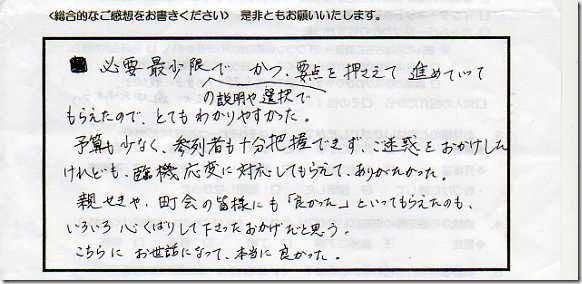 <総合的なご感想をお書きください> 是非ともお願いいたします。
必要最少限で かつ、要点を押さえて 進めていって
の説明や選択で
もらえたので、とてもわかりやすかった。
予算も少なく、参列者も十分把握できず、ご迷惑をおかけした
けれども、臨機応変に対応してもらえて、ありがたかった。
親せきや、町会の皆様にも「良かった」といってもらえたのも、
いろいろ心くばりして下さったおかげだと思う。
こちらにお世話になって、本当に良かった。